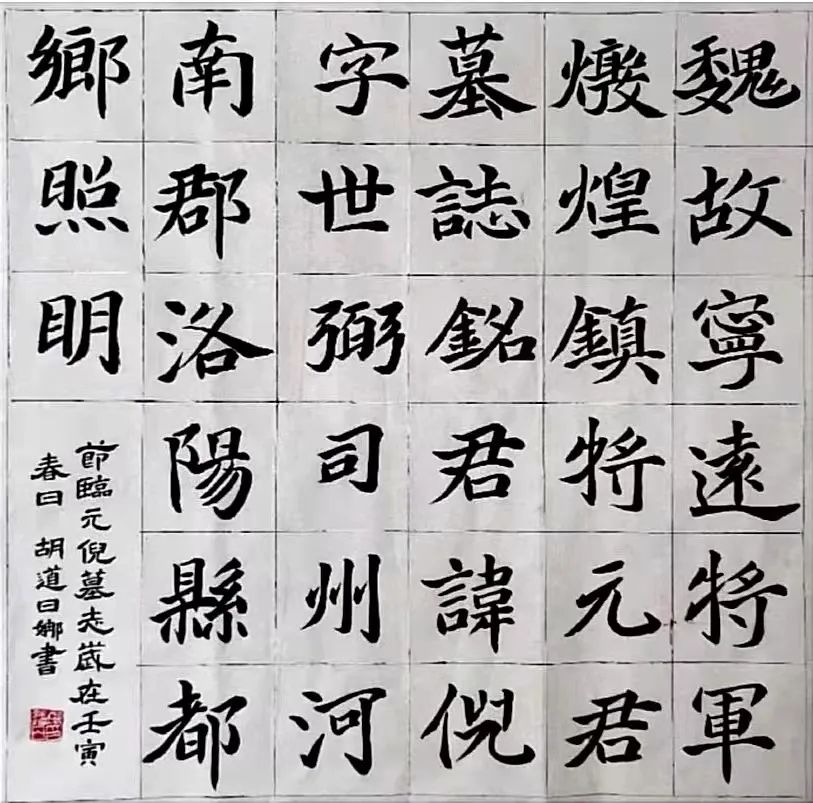 魏故寧遠將軍
燉煌鎮將元君
墓誌銘君諱倪
字世弼司州河
南郡洛陽縣都
鄉照明
節臨元倪墓志歲在壬寅
春日 胡道日娜書